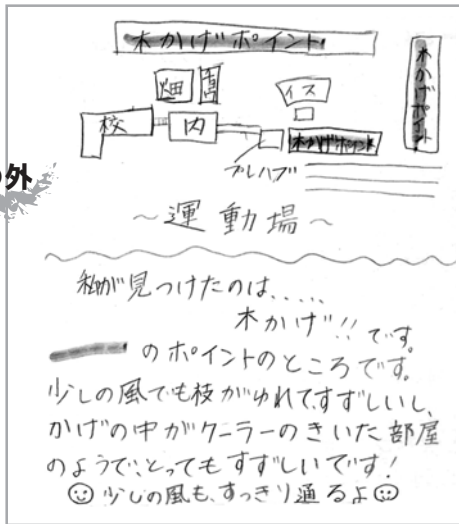 木かげポイント
木かげポイント
畑
イス
校
内
木かげポイント
プレハブ
の外
～運動場～
私が見つけたのは、、、、、
木かげ!!です。
のポイントのところです。
少しの風でも枝がゆれてすずしいし、
かげの中がクーラーのきいた部屋
のようで、とってもすずしいです!
少しの風も、すっきり通るよ